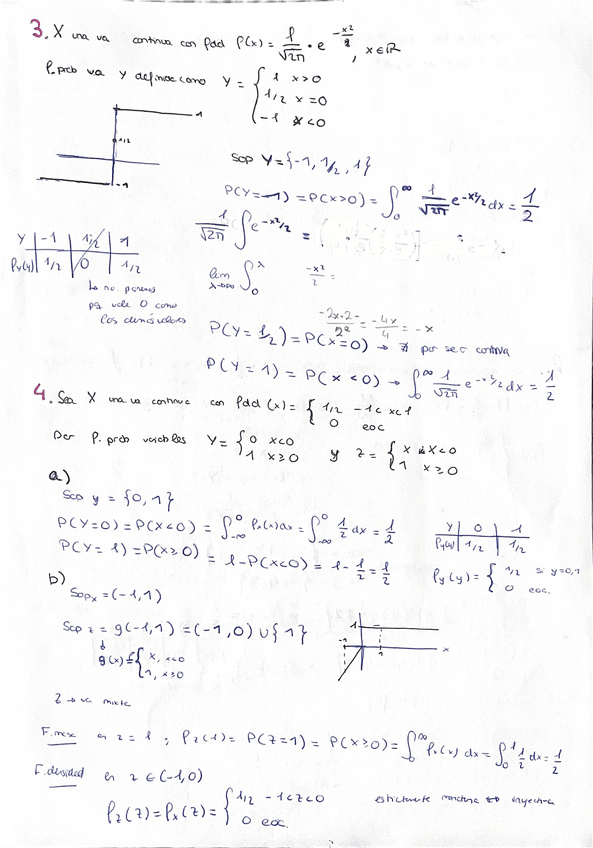 3. X una va continua con fdd f(x) = 1/√2π · e^(-x²/2), x∈ℝ
f. prob va Y definida como Y = { 1 x>0
1/2 x=0
-1 x<0
1
1/2
-1
Sop Y = {-1, 1/2, 1}
P(Y=-1) = P(x>0) = ∫₀^∞ 1/√2π e^(-x²/2) dx = 1/2
1/√2π ∫ e^(-x²/2) =
Y | -1 | 1/2 | 1
P_Y(y) | 1/2 | 0 | 1/2
lim λ→∞ ∫₀^λ -x²/2 =
↳ no ponemos
pq vale 0 como
los demás valores
-2x·2-/2² = -4x/4 = -x
P(Y=1/2) = P(x=0) → ∄ por ser continua
P(Y=1) = P(x<0) → ∫₀^∞ 1/√2π e^(-x²/2) dx = 1/2
4. Sea X una va continua con fdd (x) = { 1/2 -1<x<1
0 eoc
Dar f. prob variables Y = { 0 x<0
1 x≥0
y Z = { x x<0
1 x≥0
a)
Sop y = {0,1}
P(Y=0) = P(X<0) = ∫_-∞^0 f_x(x)dx = ∫_-∞^0 1/2 dx = 1/2
P(Y=1) = P(x≥0) = 1-P(x<0) = 1-1/2 = 1/2
Y | 0 | 1
P_Y(y) | 1/2 | 1/2
P_Y(y) = { 1/2 si y=0,1
0 eoc.
b)
Sop_x = (-1,1)
Sop z = g(-1,1) = (-1,0) ∪ {1}
g(x) = { x, x<0
1, x≥0
1
-1
1
x
Z → va mixta
F. masa en z=1 ; P_Z(1) = P(Z=1) = P(X≥0) = ∫₀^∞ f_x(x) dx = ∫₀^1 1/2 dx = 1/2
F. densidad en z ∈ (-1,0)
f_Z(z) = f_X(z) = { 1/2 -1<z<0
0 eoc.
estrictamente monótona ⇔ inyectiva